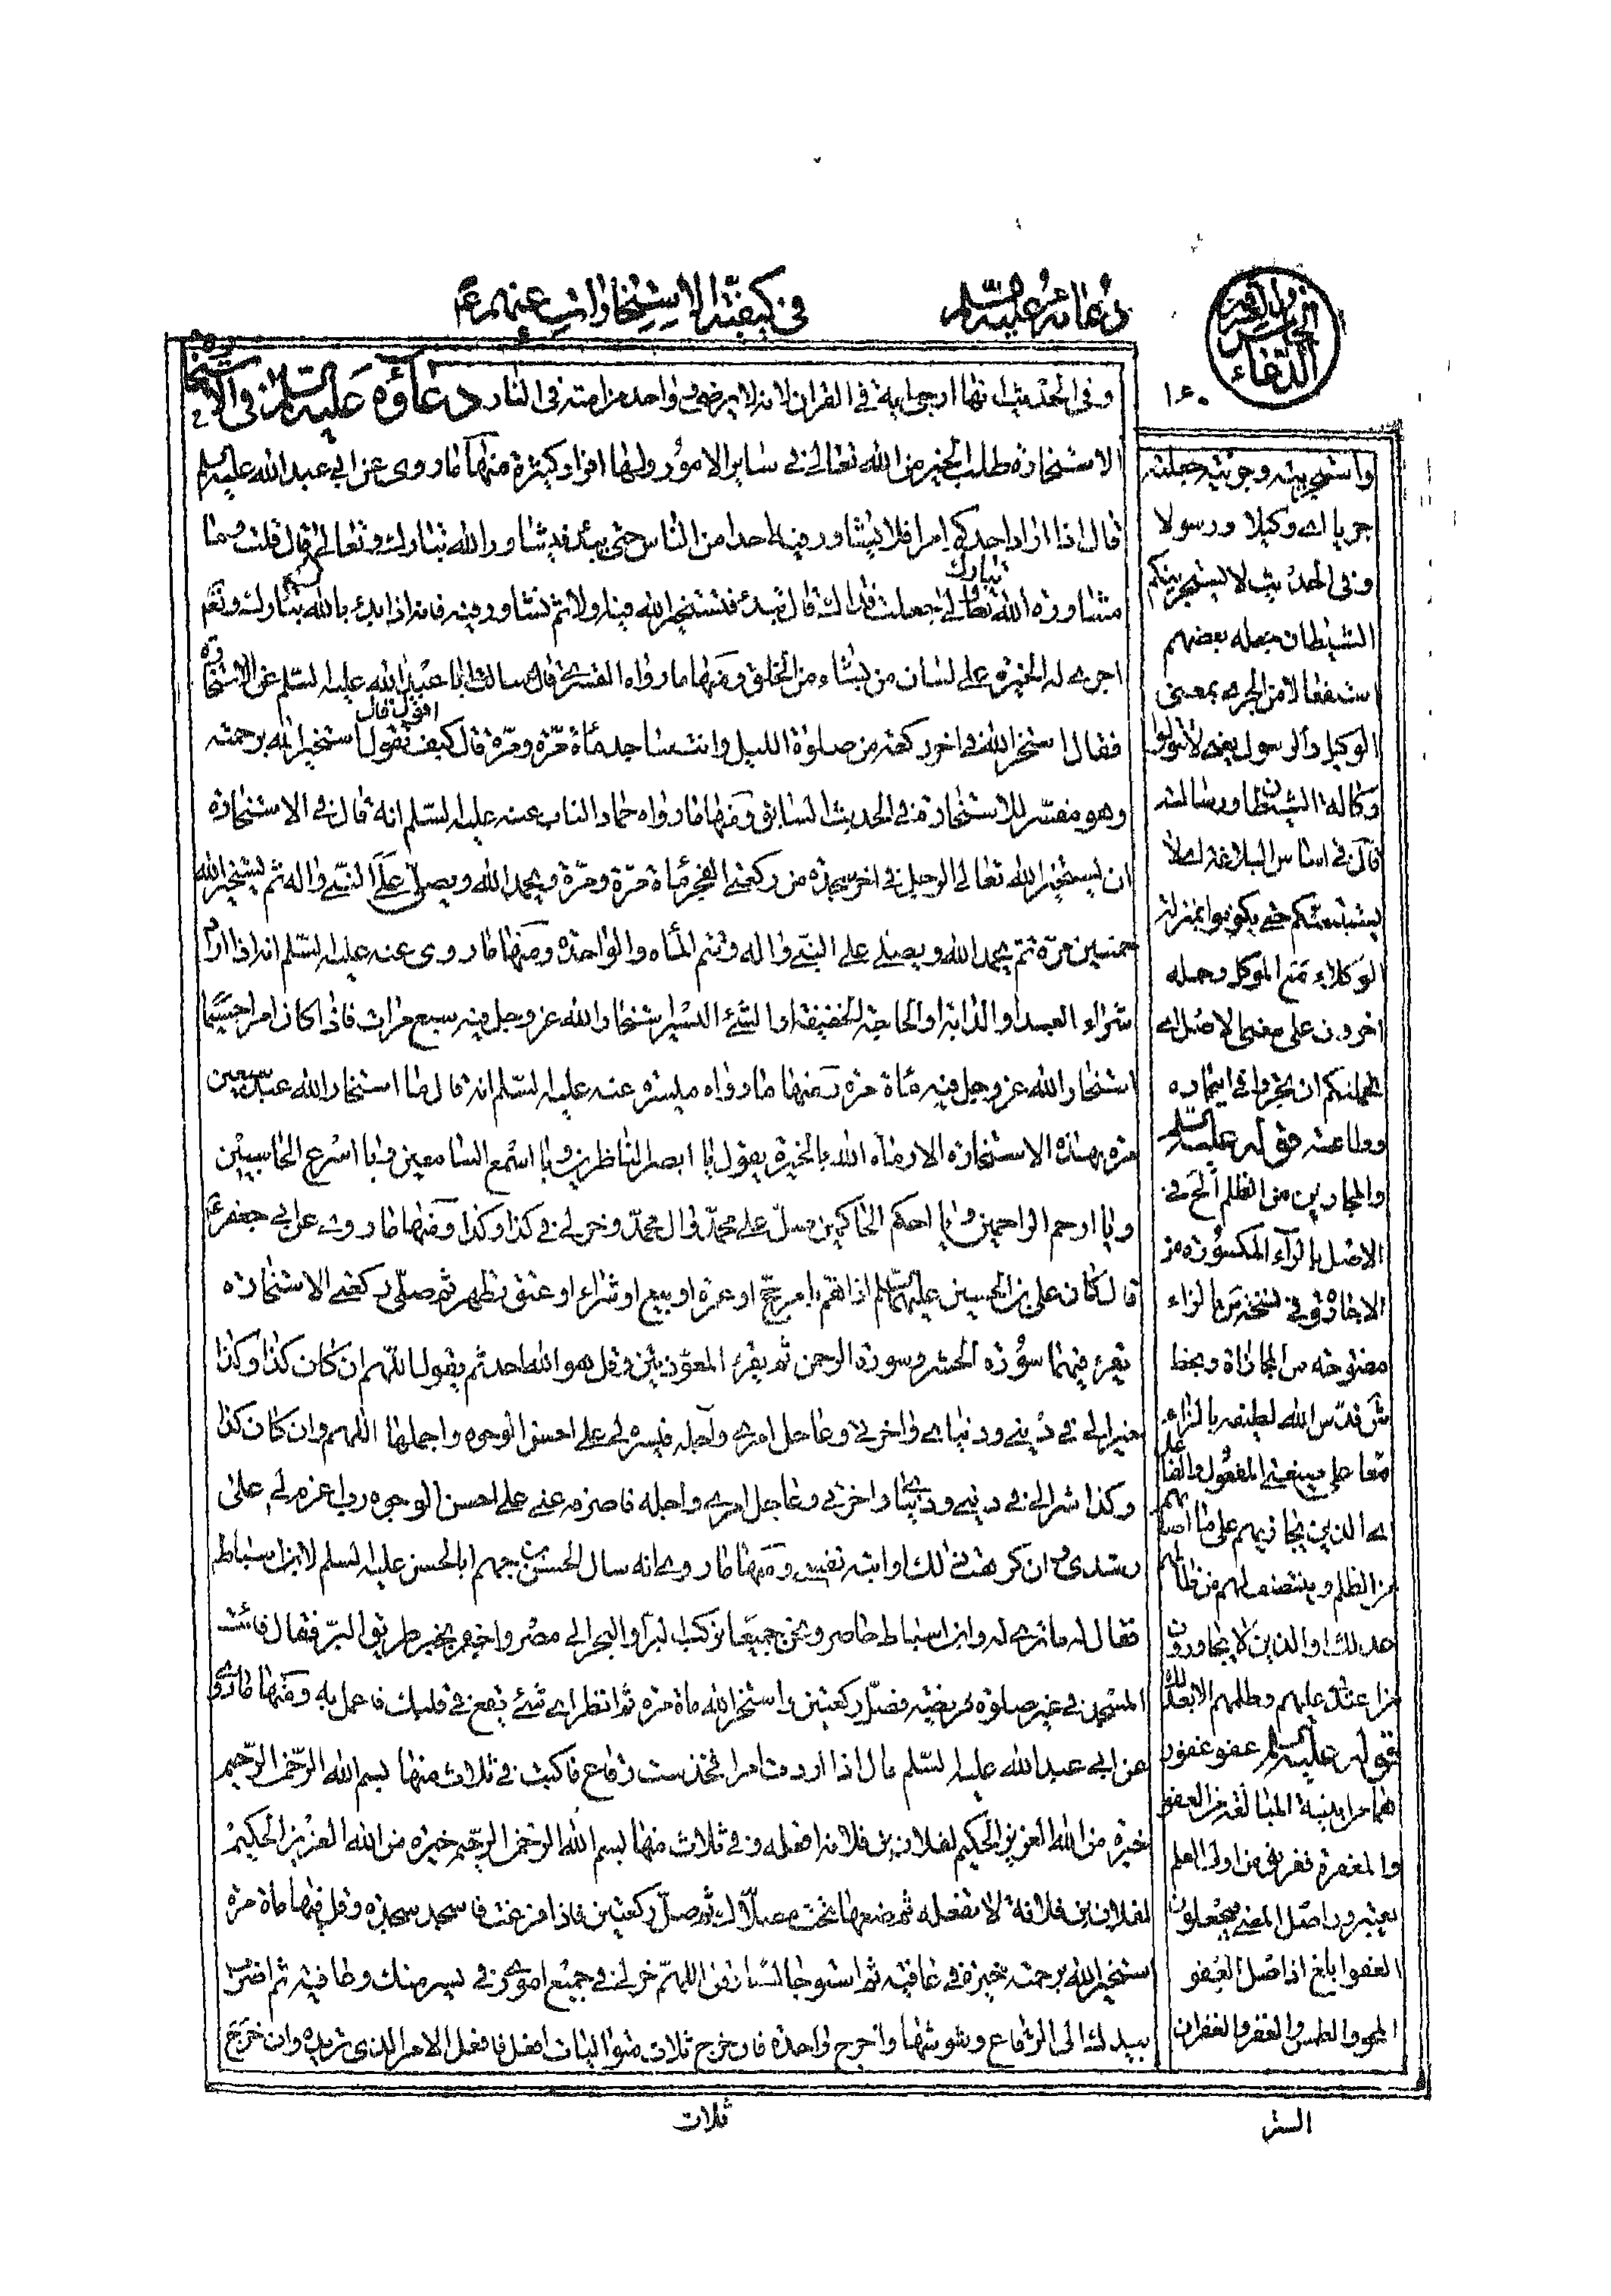 دعائه عليه السلم
في كيفية الاستخارات عنهم ع
١٦٠
وفي الحديث انها ارجى اية في القران لانه لا يرضى وواحد من امته في النار دعاؤه عليه السلام في الاستخاره
الاستخارة طلب الخير من الله تعالى في ساير الامور ولها افراد كثيرة منها ما روى عن ابي عبد الله عليه السلم
قال اذا اراد احدكم امرا فلا يشاور فيه احدا من الناس حتى يبدء فيشاور الله تبارك وتعالى قال قلت وما
مشاورة الله تبارك وتعالى جعلت فداك قال تبدء فتستخير الله فيه اولا ثم تشاور فيه فانه اذا بدء بالله تبارك وتعم
اجرى له الخيرة على لسان من يشاء من الخلق ومنها ما رواه القسرى قال سالت ابا عبد الله عليه السلم عن الاستخارة
فقال استخر الله في اخر ركعة من صلوة الليل وانت ساجد مأة مرة ومرة قال كيف اقول قال تقول استخير الله برحمته
وهو مفسر للاستخارة في الحديث السابق ومنها ما رواه حماد الناب عنه عليه السلم انه قال في الاستخارة
ان يستخير الله تعالى الرجل في اخر سجدة من ركعتي الفجر مأة مرة ومرة ويحمد الله ويصلى على النبي واله ثم يستخير الله
خمسين مرة ثم يحمد الله ويصلى على النبي واله وتتم المأه والواحدة ومنها ما روى عنه عليه السلم انه اذا اراد
شراء العبد او الدابة او الحاجة الخفيفة او الشئ اليسير استخار الله عز وجل فيه سبع مرات فاذا كان امرا جسيما
استخار الله عز وجل فيه مأة مرة ومنها ما رواه ميسره عنه عليه السلم انه قال ما استخار الله عبد سبعين
مرة بهذه الاستخارة الا رماه الله بالخيرة يقول يا ابصر الناظرين ويا اسمع السامعين ويا اسرع الحاسبين
ويا ارحم الراحمين ويا احكم الحاكمين صل على محمد وال محمد وخر لي في كذا وكذا ومنها ما روى عن ابي جعفر ع
قال كان على بن الحسين عليهما السلم اذا هم بامر حج او عمرة او بيع او شراء او عتق تطهر ثم صلى ركعتى الاستخارة
يقرء فيهما سورة الحشر وسورة الرحمن ثم يقرء المعوذتين وقل هو الله احد ثم يقول اللهم ان كان كذا وكذا
خيرا لي في ديني ودنياى واخرتي وعاجل امرى واجله فيسره لي على احسن الوجوه واجملها اللهم وان كان كذا
وكذا شرا لي في ديني ودنياى واخرتي وعاجل امرى واجله فاصرفه عنى على احسن الوجوه رب اعزم لي على
رشدى وان كرهت ذلك او ابته نفسى ومنها ما روى انه سال الحسن بن جهم ابا الحسن عليه السلم لابن اسباط
فقال له ما ترى له وابن اسباط حاضر ونحن جميعا نركب البر او البحر الى مصر واخبره بخير طريق البر فقال فائت
المسجد في غير صلوة فريضة فصل ركعتين واستخر الله مأة مرة ثم انظر اى شئ يقع في قلبك فاعمل به ومنها ما روى
عن ابي عبد الله عليه السلم قال اذا اردت امرا فخذ ست رقاع فاكتب في ثلاث منها بسم الله الرحمن الرحيم
خيرة من الله العزيز الحكيم لفلان بن فلانه افعله وفي ثلاث منها بسم الله الرحمن الرحيم خيرة من الله العزيز الحكيم
لفلان بن فلانة لا تفعله ثم ضعها تحت مصلاك ثم صل ركعتين فاذا فرغت فاسجد سجدة وقل فيها مأة مرة
استخير الله برحمته خيرة في عافية ثم استو جالسا وقل اللهم خر لي في جميع امورى في يسر منك وعافية ثم اضرب
بيدك الى الرقاع وشوشها واخرج واحدة فان خرج ثلاث متواليات افعل فافعل الامر الذى تريده وان خرج
ثلاث
واستجريته وجريته جعلته
جريا اى وكيلا ورسولا
وفي الحديث لا يستجرينكم
الشيطان جعله بعضهم
اشتقاقا من الجرى بمعنى
الوكيل والرسول يعنى لا تتولوا
وكالة الشيطان ورسالته
قال في اساس البلاغة
يستتبعنكم حتى يكونوا بمنزلة
الوكلاء من الموكل وحمله
اخرون على
ان تجروا في
وطاعته قوله عليه السلم
والمجارين من الظلم الخ في
الاصل بالراء المكسورة من
الاجارة وفي نسخة س بالزاء
مفتوحة من المجازاة وبخط
ش قدس الله لطيفه بالزاء
معا على صيغة المفعول والفاعل
اى الذين يجازيهم على ما اصابهم
من الظلم وينتصف لهم من ظالمهم
عدلك او الذين لا يجاوزون
قوله عليه السلم عفو غفور
هما من ابنية المبالغة من العفو
والمغفرة ففريق من اولى العلم
يعتبرون اصل المعنى فيجعلون
العفو ابلغ اذ اصل العفو
المحو والطمس والغفر والغفران
الستر